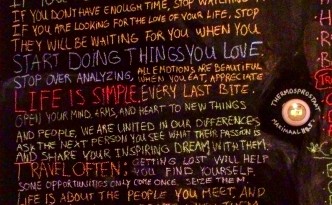 IF YOU DON'T HAVE ENOUGH TIME, STOP WATCHING
IF YOU ARE LOOKING FOR THE LOVE OF YOUR LIFE, STOP
THEY WILL BE WAITING FOR YOU WHEN YOU
START DOING THINGS YOU LOVE.
STOP OVER ANALYZING, ALL EMOTIONS ARE BEAUTIFUL
WHEN YOU EAT, APPRECIATE
LIFE IS SIMPLE. EVERY LAST BITE.
OPEN YOUR MIND, ARMS, AND HEART TO NEW THINGS
AND PEOPLE, WE ARE UNITED IN OUR DIFFERENCES
ASK THE NEXT PERSON YOU SEE WHAT THEIR PASSION IS
AND SHARE YOUR INSPIRING DREAM WITH THEM.
TRAVEL OFTEN; GETTING LOST WILL HELP
YOU FIND YOURSELF.
SOME OPPORTUNITIES ONLY COME ONCE, SEIZE THEM.
LIFE IS ABOUT THE PEOPLE YOU MEET, AND